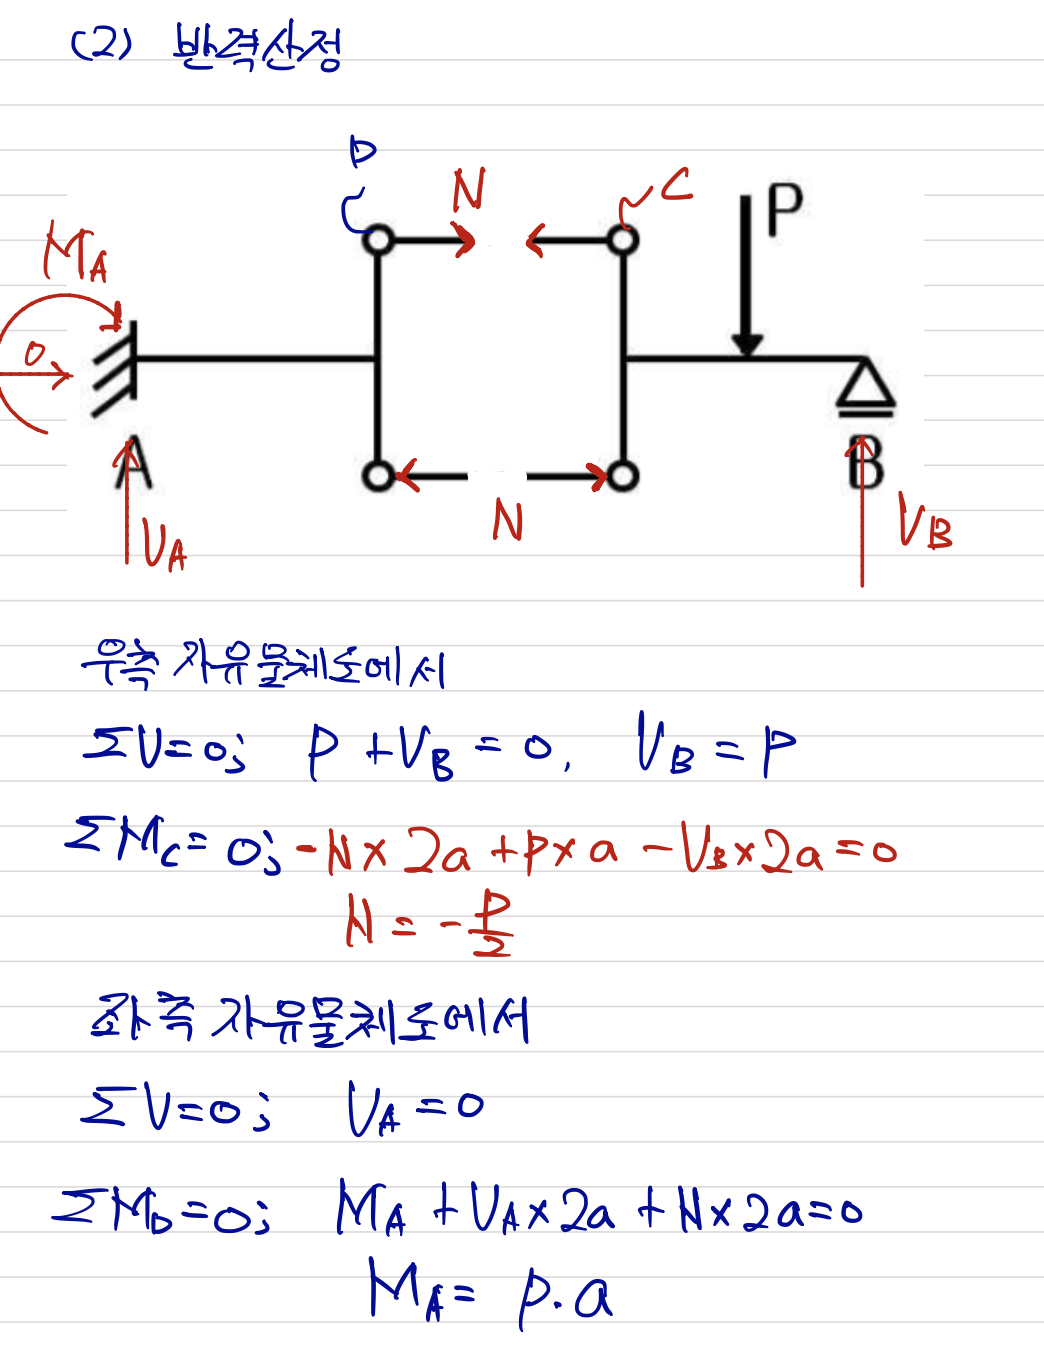 (2) 반력산정
D
N
C
P
M_A
0
A
B
V_A
N
V_B
우측 자유물체도에서
ΣV=0; P+V_B=0, V_B=P
ΣM_C=0; -N×2a+P×a-V_B×2a=0
N=-P/2
좌측 자유물체도에서
ΣV=0; V_A=0
ΣM_D=0; M_A+V_A×2a+N×2a=0
M_A=P·a